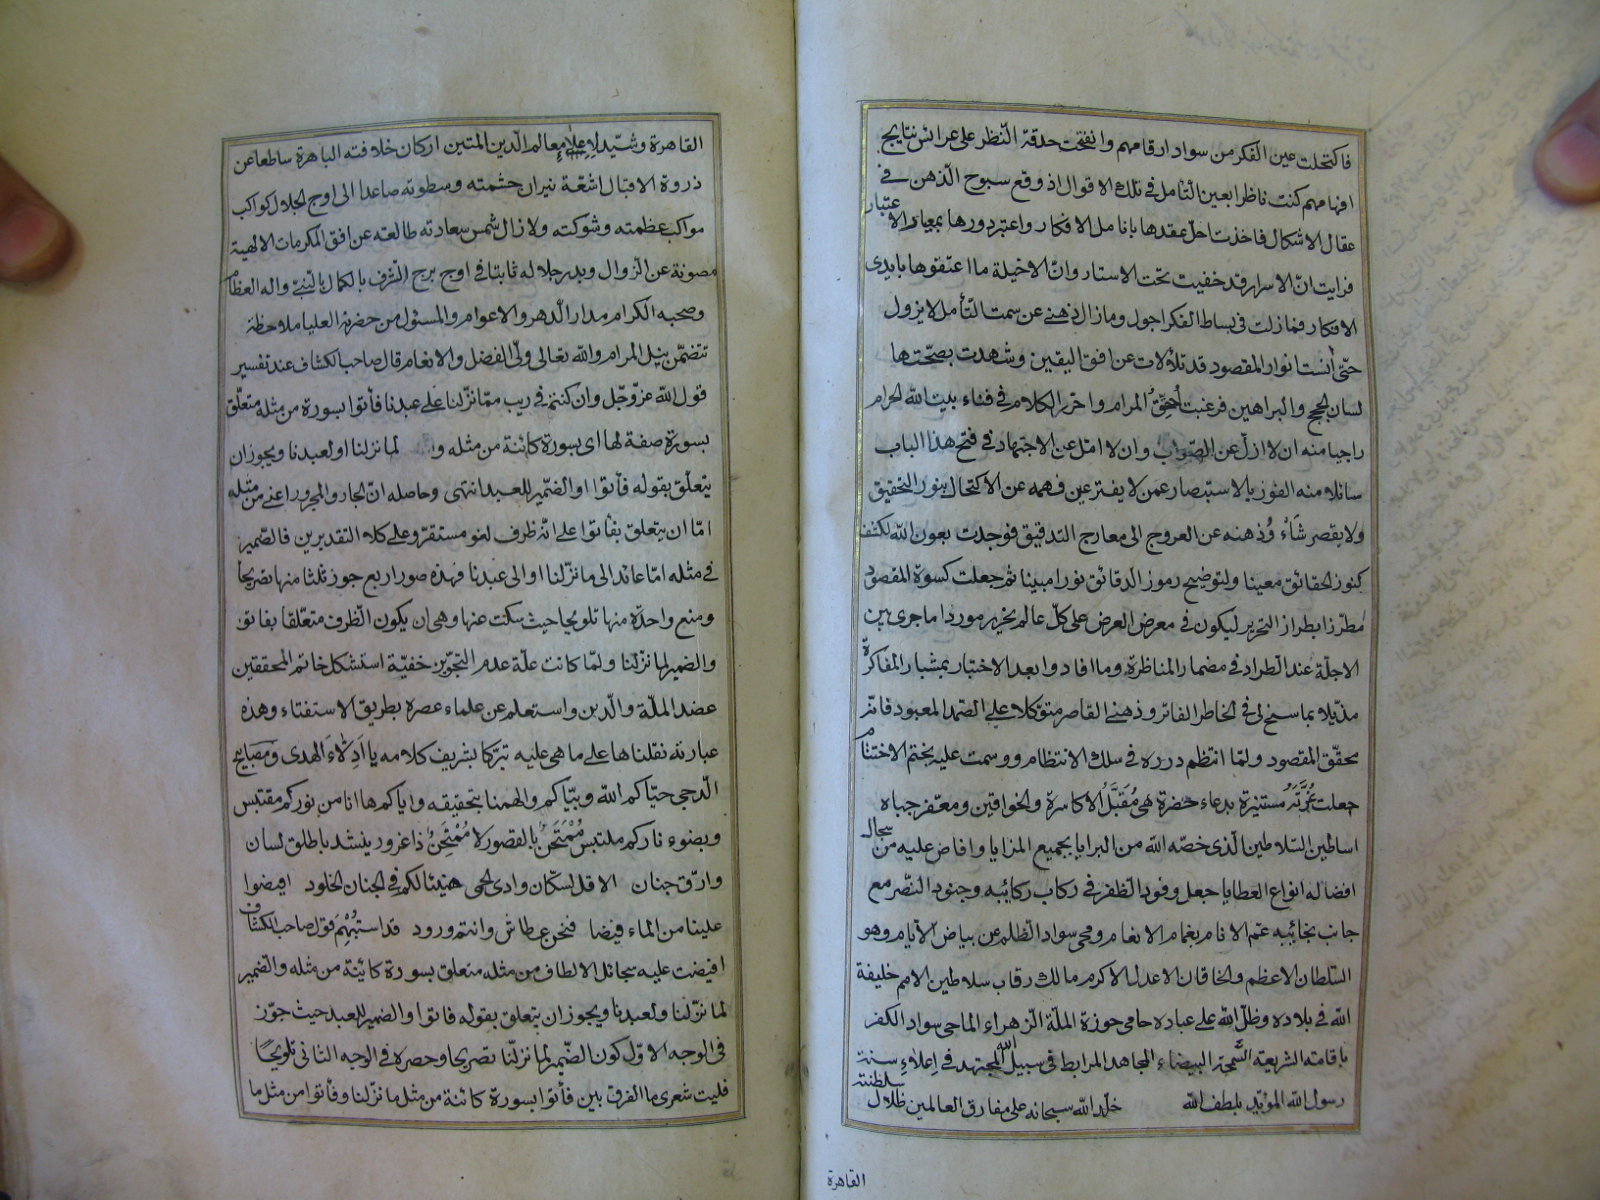 فاكتحلت عين الفكر من سواد ارقامهم وانفتحت حدقة النظر على عرائس نتايج
افهامهم كنت ناظرا بعين التأمل فى تلك الاقوال اذ وقع سبوح الذهن فى
عقال الاشكال فاخذت احل عقدها بانامل الافكار واعتبر دررها بمعيار الاعتبار
فرايت ان الاسرار قد خفيت تحت الاستار وان الاخيلة ما اعتقوها بايدى
الافكار فما زلت فى بساط الفكر اجول وما زال ذهنى عن سمت التأمل لا يزول
حتى أنست انوار المقصود قد تلألات عن افق اليقين وشهدت بصحتها
لسان الحجج والبراهين فرغبت أحقق المرام واحرر الكلام فى فناء بيت الله الحرام
راجيا منه ان لا ازل عن الصواب وان لا امل عن الاجتهاد فى فتح هذا الباب
سائلا منه الفوز بالاستبصار عمن لا يفتر عين فهمه عن الاكتحال بنور التحقيق
ولا يقصر شأو ذهنه عن العروج الى معارج التدقيق فوجدت بعون الله لكشف
كنوز الحقائق معينا ولتوضيح رموز الدقائق نورا مبينا ثم جعلت كسوة المقصود
مطرزا بطراز التحرير ليكون فى معرض العرض على كل عالم نحرير موردا ما جرى بين
الاجلة عند الطراد فى مضمار المناظرة وما افادوا بعد الاختبار بمسبار المفاكرة
مذيلا بما سنح لى فى الخاطر الفاتر وذهنى القاصر متوكلا على الصمد المعبود فانه
محقق المقصود ولما انتظم درره فى سلك الانتظام ووسمت عليه بختم الاختتام
جعلت غرته مستنيرة بدعاء حضرة هى مقبل الاكاسرة والخواقين ومعفر جباه
اساطين السلاطين الذى خصه الله من البرايا بجميع المزايا وافاض عليه من سجال
افضاله انواع العطايا جعل وفود الظفر فى ركاب ركائبه وجنود النصر مع
جانب نجائبه عم الانام بغمام الانعام ومحى سواد الظلم عن بياض الأيام وهو
السلطان الاعظم والخاقان الاعدل الاكرم مالك رقاب سلاطين الامم خليفة
الله فى بلاده وظل الله على عباده حامى حوزة الملة الزهراء الماحى سواد الكفر
باقامته الشريعة السمحة البيضاء المجاهد المرابط فى سبيل الله المجتهد فى اعلاء سنة
رسول الله المؤيد بلطف الله خلد الله سبحانه على مفارق العالمين ظلال سلطنته
القاهرة
القاهرة وشيد لاعلاء معالم الدين المتين اركان خلافته الباهرة ساطعا عن
ذروة الاقبال اشعة نيران حشمته وسطوته صاعدا الى اوج الجلال كواكب
مواكب عظمته وشوكته ولا زال شمس سعادته طالعة عن افق المكرمات الالهية
مصونة عن الزوال وبدر جلاله ثابتا فى اوج برج الشرف بالكمال بالنبى واله العظام
وصحبه الكرام مدار الدهر والاعوام والمسئول من حضرة العليا ملاحظة
تتضمن بنيل المرام والله تعالى ولى الفضل والانعام قال صاحب الكشاف عند تفسير
قول الله عز وجل وان كنتم فى ريب مما نزلنا على عبدنا فأتوا بسورة من مثله متعلق
بسورة صفة لها اى بسورة كائنة من مثله و لما نزلنا او لعبدنا ويجوز ان
يتعلق بقوله فأتوا والضمير للعبد انتهى وحاصله ان الجار والمجرور اعنى من مثله
اما ان يتعلق بفأتوا على انه ظرف لغو او مستقر وعلى كلا التقديرين فالضمير
فى مثله اما عائد الى ما نزلنا او الى عبدنا فهذه صور اربع جوز ثلثا منها تصريحا
ومنع واحدة منها تلويحا حيث سكت عنها وهى ان يكون الظرف متعلقا بفاتوا
والضمير لما نزلنا ولما كانت علة عدم التجويز خفية استشكل خاتم المحققين
عضد الملة والدين واستعلم عن علماء عصره بطريق الاستفتاء وهذه
عبارته نقلناها على ما هى عليه تبركا بشريف كلامه يا ادلاء الهدى ومصابيح
الدجى حياكم الله وبياكم والهمنا بتحقيقه واياكم ها انا من نوركم مقتبس
وبضوء ناركم ملتمس ممتحن بالقصور لا ممتحن ذا غرور ينشد باطلق لسان
وارق جنان الا قل لسكان وادى الحمى هنيئا لكم فى الجنان الخلود افيضوا
علينا من الماء فيضا فنحن عطاش وانتم ورود قد استبهم قول صاحب الكشاف
افيضت عليه سجائل الالطاف من مثله متعلق بسورة كائنة من مثله والضمير
لما نزلنا ولعبدنا ويجوز ان يتعلق بقوله فاتوا والضمير للعبد حيث جوز
فى الوجه الاول كون الضمير لما نزلنا تصريحا وحصره فى الوجه الثانى تلويحا
فليت شعرى ما الفرق بين فأتوا بسورة كائنة من مثل ما نزلنا وفأتوا من مثل ما